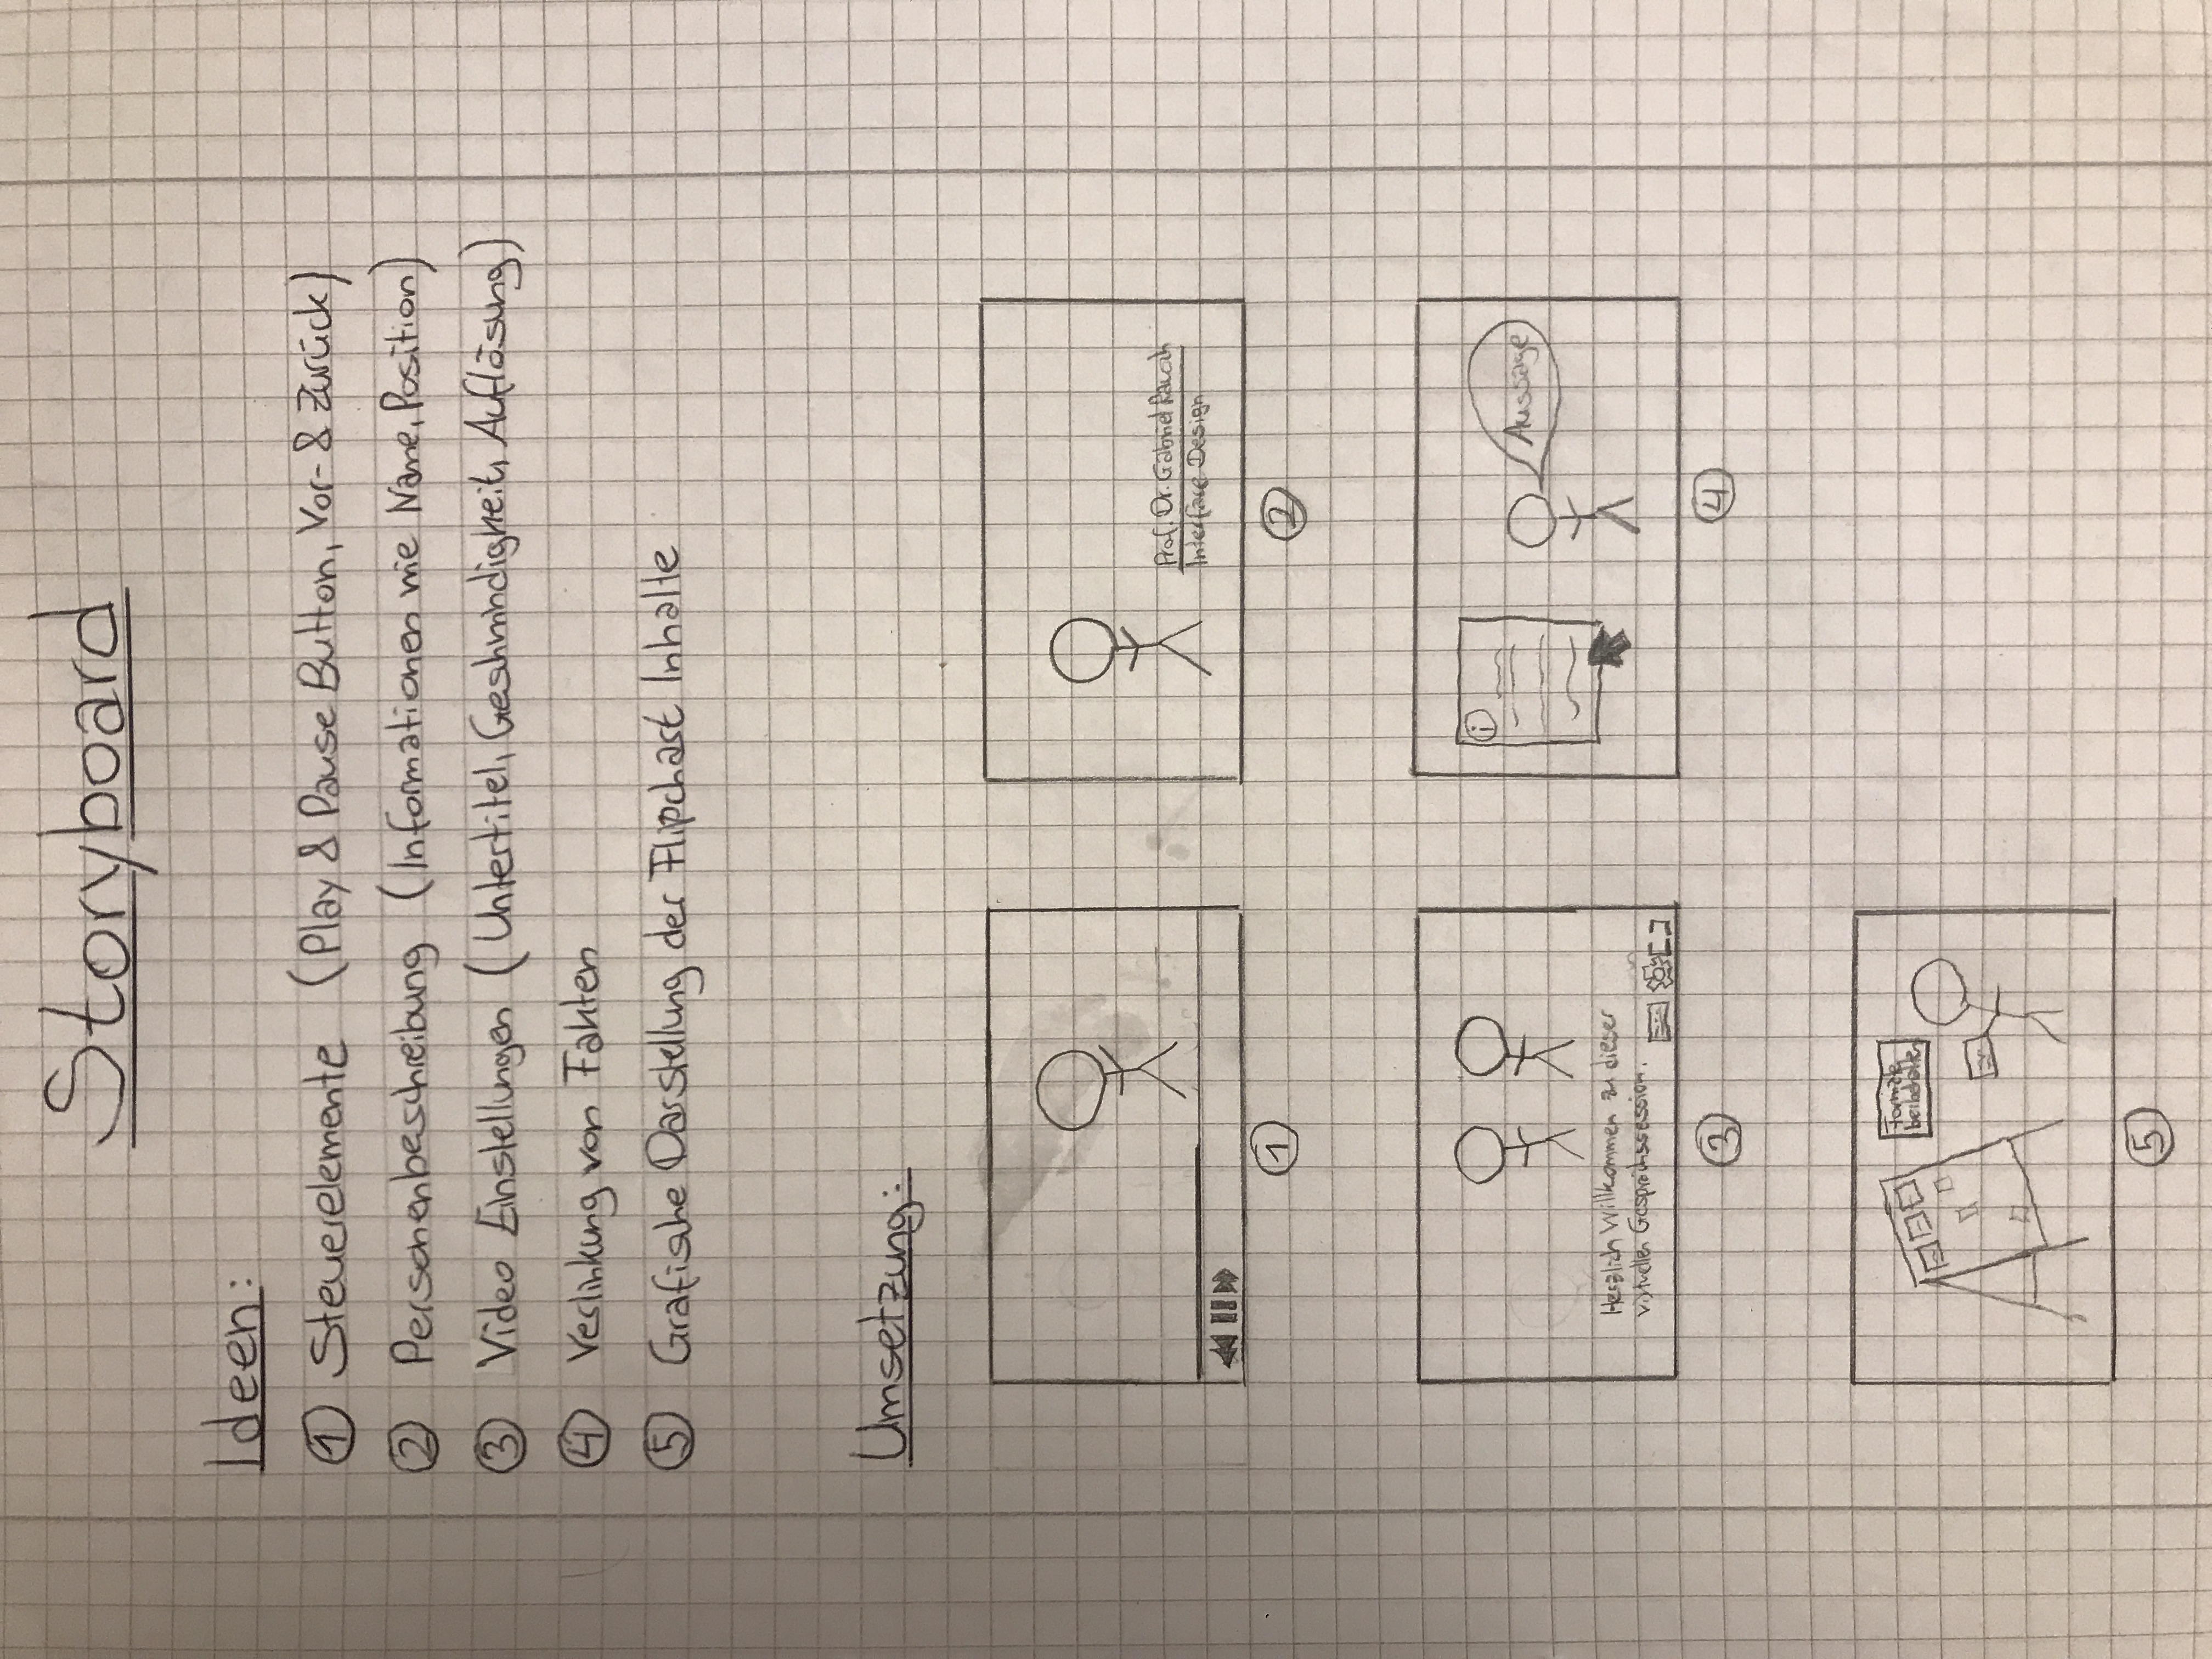 Storyboard
Ideen:
1 Steuerelemente (Play & Pause Button, Vor- & Zurück)
2 Personenbeschreibung (Informationen wie Name, Position)
3 Video Einstellungen (Untertitel, Geschwindigkeit, Auflösung)
4 Verlinkung von Fakten
5 Grafische Darstellung der Flipchart Inhalte
Umsetzung:
Prof. Dr. Gabriel Rausch
Interface Design
1
2
i
Aussage
Herzlich Willkommen zu dieser
virtuellen Gesprächssession.
3
4
Formate
beibehalten
5